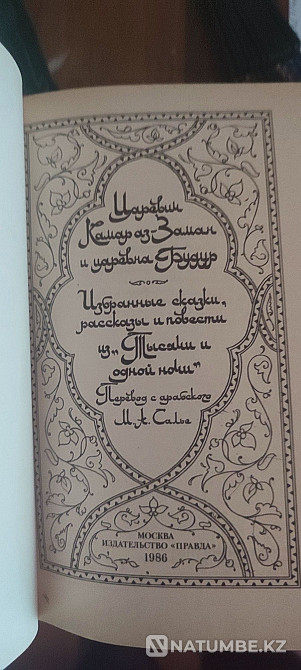 Царевич
Камар аз-Заман
и царевна Будур
Избранные сказки,
рассказы и повести
из „Тысячи и
одной ночи"
Перевод с арабского
М. А. Салье
МОСКВА
ИЗДАТЕЛЬСТВО «ПРАВДА»
1986
NATUMBE.KZ